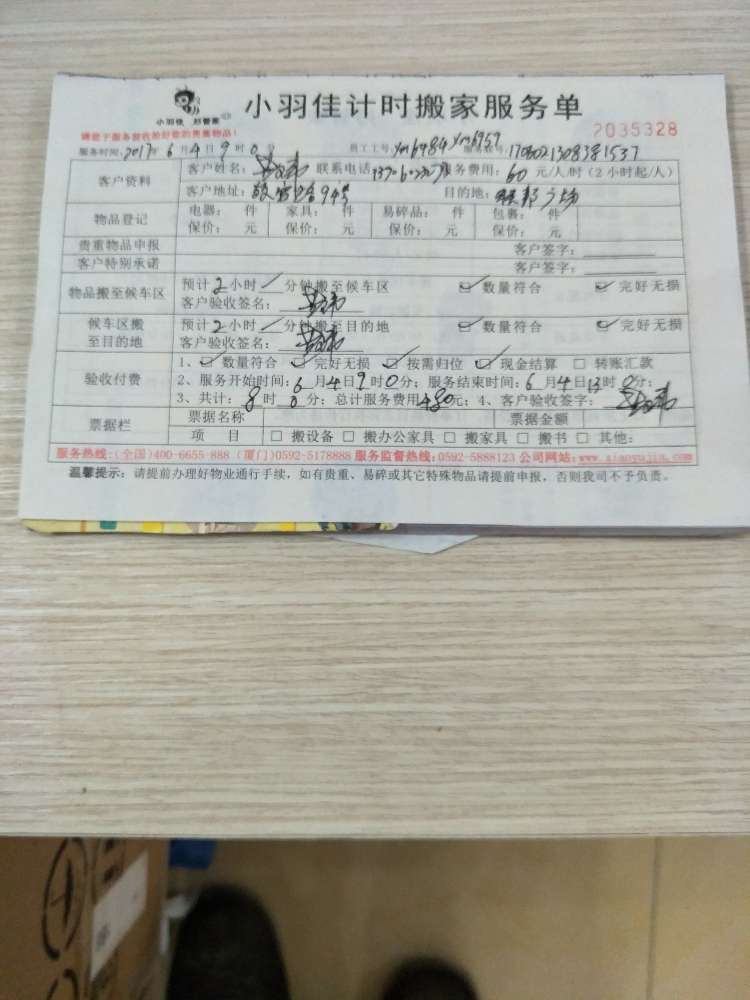 小羽佳 好管家
小羽佳计时搬家服务单
请您于服务前收验好您的贵重物品！
2035328
服务时间:2017年6月4日9时0分 员工工号:ym6984 ym6957 1706021308381537
客户资料
客户姓名: 联系电话: 服务费用:60元/人/时(2小时起/人)
客户地址: 94号 目的地: 广场
物品登记
电器: 件 家具: 件 易碎品: 件 包裹: 件
保价: 元 保价: 元 保价: 元 保价: 元
贵重物品申报 客户签字:
客户特别承诺 客户签字:
物品搬至候车区
预计2小时/分钟搬至候车区 ☑数量符合 ☑完好无损
客户验收签名:
候车区搬至目的地
预计2小时/分钟搬至目的地 ☑数量符合 ☑完好无损
客户验收签名:
验收付费
1、☑数量符合 ☑完好无损 ☑按需归位 ☑现金结算 □转账汇款
2、服务开始时间:6月4日9时0分;服务结束时间:6月4日13时0分;
3、共计:8时0分;总计服务费用480元;4、客户验收签字:
票据栏
票据名称 票据金额
项 目 □搬设备 □搬办公家具 □搬家具 □搬书 □其他:
服务热线:(全国)400-6655-888 (厦门)0592-5178888 服务监督热线:0592-5888123 公司网站:www.xiaoyujia.com
温馨提示: 请提前办理好物业通行手续，如有贵重、易碎或其它特殊物品请提前申报，否则我司不予负责。